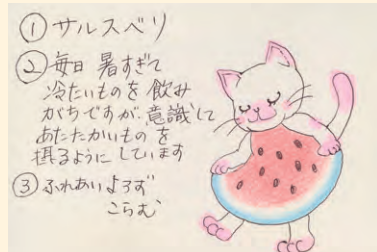 ① サルスベリ
② 毎日 暑すぎて
冷たいものを 飲み
がちですが、意識して
あたたかいものを
摂るように しています
③ ふれあいよろず
こらむ